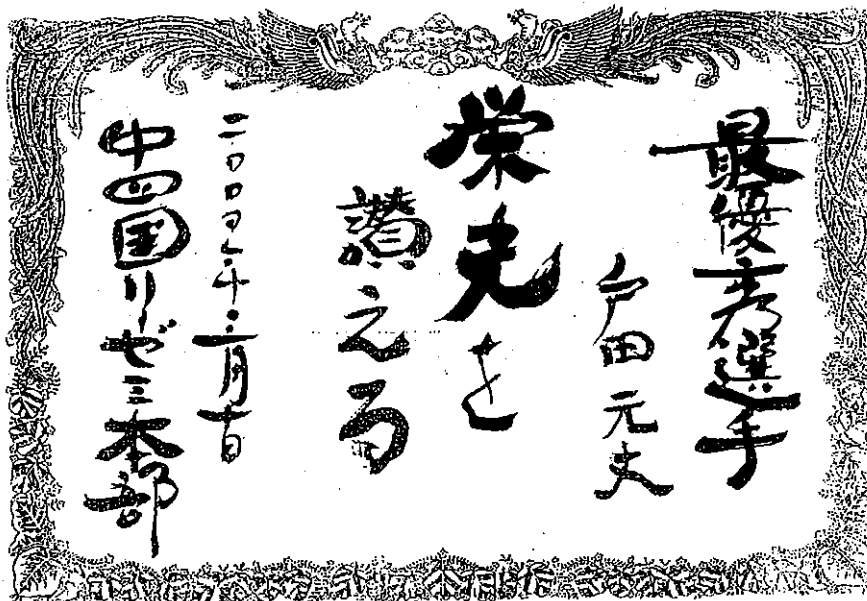 最優秀選手
戸田元夫
栄光を
讃える
二〇〇 年 二月十日
中四国リーゼミ本部